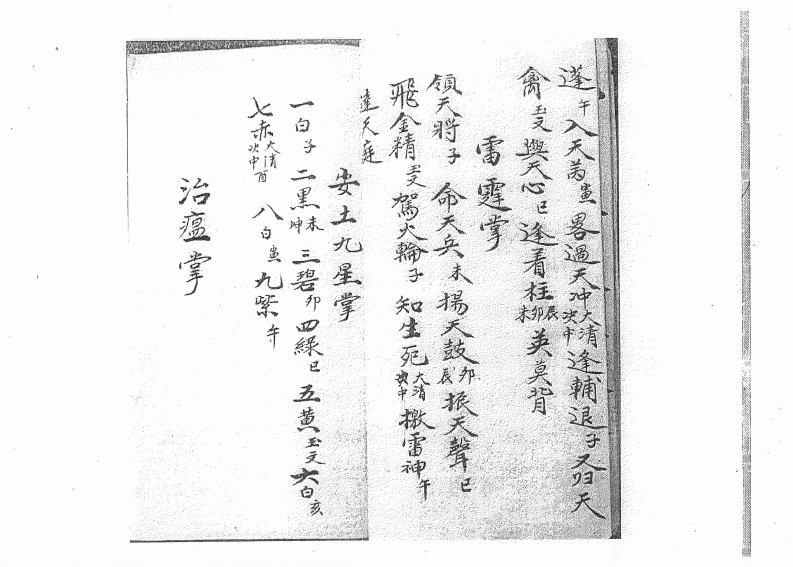 蓬午入天芮䖝畧過天冲大清次中逢輔退子又归天
禽玉文與天心巳逢着柱辰卯未英莫背
雷霆掌
領天將子命天兵未揚天鼓卯辰振天聲巳
飛金精玉文駕火輪子知生死大清次中撒雷神午
達天庭
安土九星掌
一白子二黑未坤三碧卯四緑巳五黄玉文六白亥
七赤大清次中酉八白䖝九紫午
治瘟掌